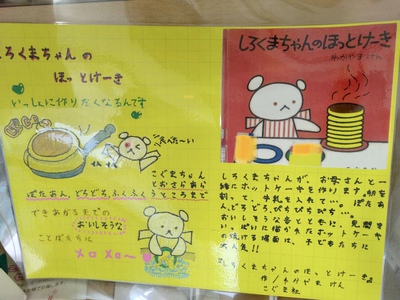 しろくまちゃんの
ほっとけーき
いっしょに作りたくなるんです
たべた〜い
こぐまちゃん
とおさらあら
うところまで
ぽたあん、どろどろ、ふくふく
できあがるまでの
おいしそうな
ことばたちに
メロメロ〜
しろくまちゃんのほっとけーき
わかやまけん
しろくまちゃんが、お母さんと一
緒にホットケーキを作ります。卵を
割って、牛乳を入れて…。ぽたあ
ん、どろどろ、ぴちぴちぴち…。
おいしそうな音とともに、見開き
いっぱいに描かれたホットケーキ
の焼ける場面は、子どもたちに
大人気!!
しろくまちゃんのほっとけーき
わかやまけん
こぐま社